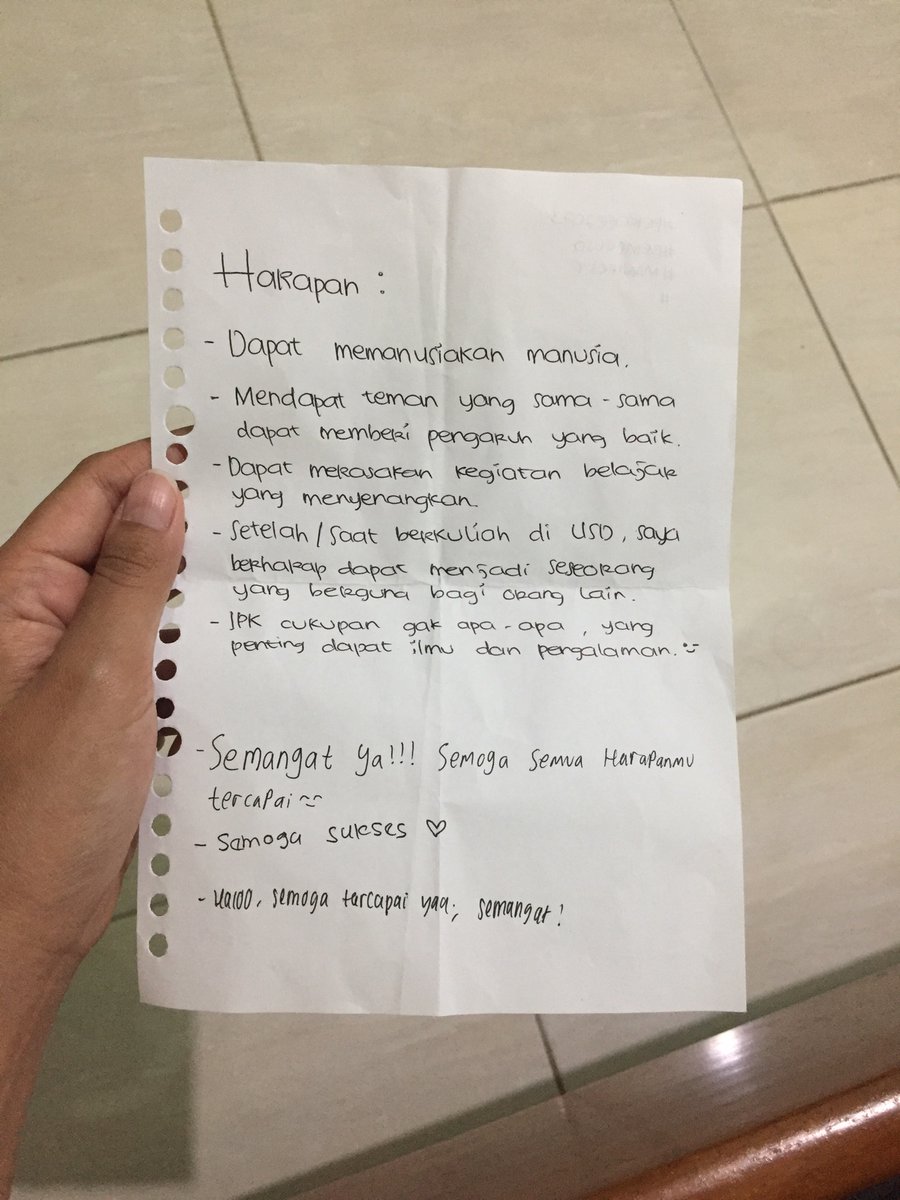 Harapan :
- Dapat memanusiakan manusia.
- Mendapat teman yang sama - sama
dapat memberi pengaruh yang baik.
- Dapat merasakan kegiatan belajar
yang menyenangkan.
- Setelah / Saat berkuliah di USD, saya
berharap dapat menjadi seseorang
yang berguna bagi orang lain.
- IPK cukupan gak apa-apa, yang
penting dapat ilmu dan pengalaman.
- Semangat ya!!! Semoga semua Harapanmu
tercapai
- Semoga sukses ♡
- Haloo, semoga tercapai yaa; semangat!